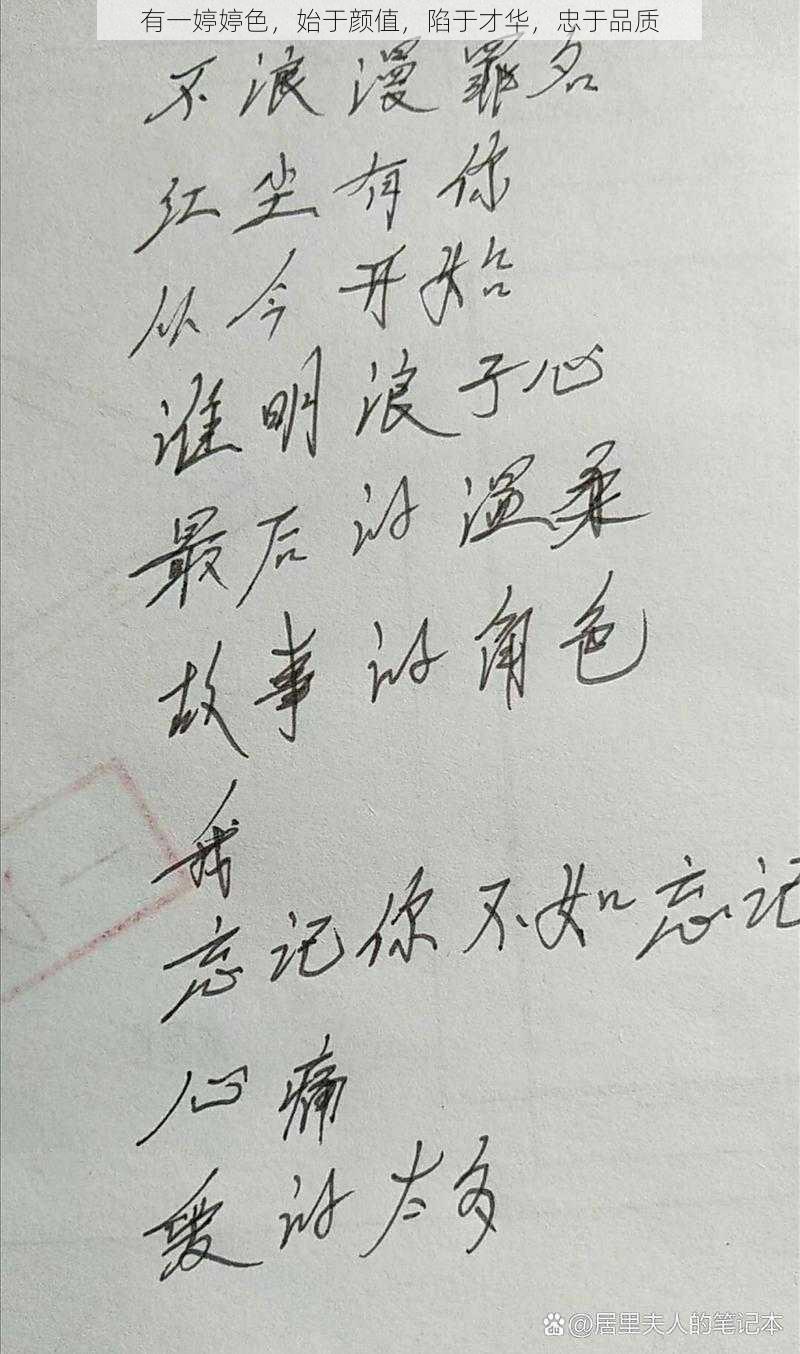 有一婷婷色，始于颜值，陷于才华，忠于品质
不浪漫罪名
红尘有你
从今开始
谁明浪子心
最后的温柔
故事的角色
我
忘记你不如忘记
心痛
爱的太多
@居里夫人的笔记本